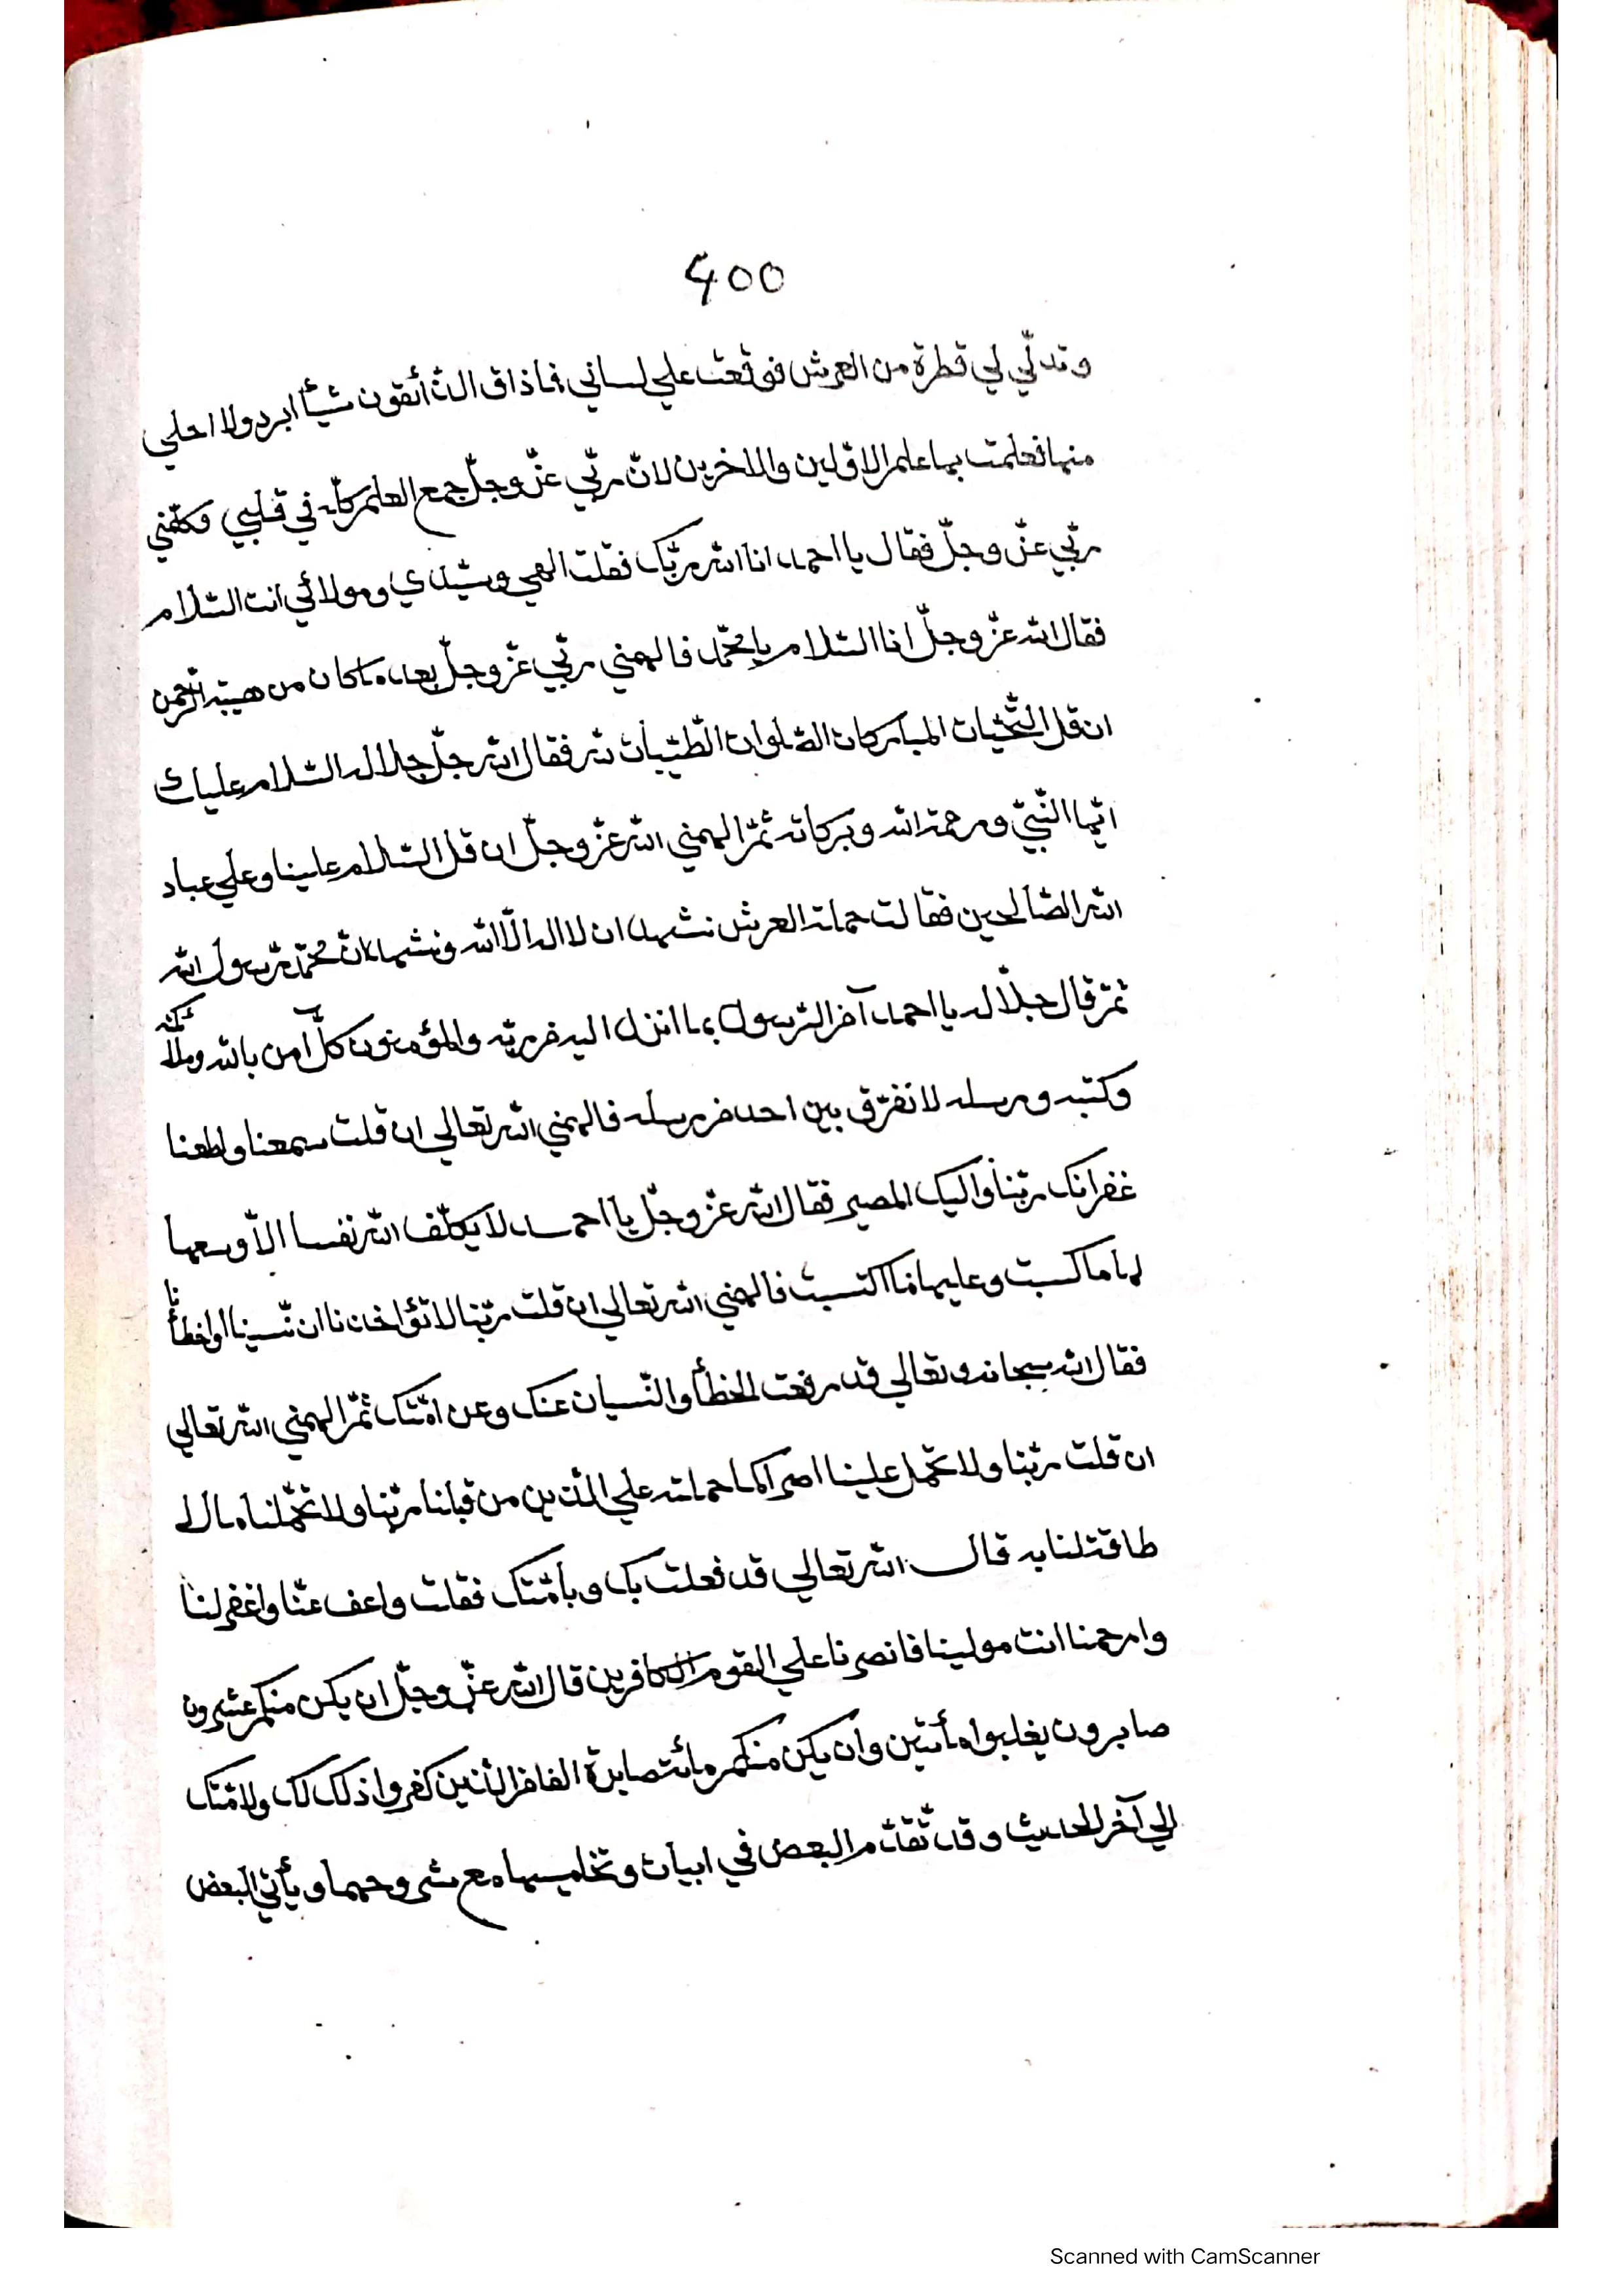 400
وتدلّي لي قطرة من العرش فوقعت علي لساني فماذاق الذائقون شيئًا ابرد ولا احلي
منها فعلمت بها علم الاوّلين والاخرين لانّ ربّي عزّ وجلّ جمع العلم كلّه في قلبي فكلّمني
ربّي عزّ وجلّ فقال يا احمد انا الله ربّك فقلت الهي وسيّدي ومولائي انت السّلام
فقال الله عزّ وجلّ انا السّلام يا محمّد فالهمني ربّي عزّ وجلّ بعد ما كان من هيبة الرّحمن
ان قل التّحيّات المباركات الصّلوات الطّيّبات لله فقال الله جلّ جلاله السّلام عليك
ايّها النّبيّ ورحمة الله وبركاته ثمّ الهمني الله عزّ وجلّ ان قل السّلام علينا وعلي عباد
الله الصّالحين فقالت حملة العرش نشهد ان لا اله الّا الله ونشهد انّ محمّد رسول الله
ثمّ قال جلّاله يا احمد آمن الرّسول بما انزل اليه من ربّه والمؤمنون كلّ آمن بالله وملٓئكته
وكتبه ورسله لا نفرّق بين احد من رسله فالهمني الله تعالي ان قلت سمعنا واطعنا
غفرانك ربّنا واليك المصير فقال الله عزّ وجلّ يا احمد لا يكلّف الله نفسا الّا وسعها
لها ما كسبت وعليها ما اكتسبت فالهمني الله تعالي ان قلت ربّنا لا تؤاخذنا ان نّسينا او اخطأنا
فقال الله سبحانه وتعالي قد رفعت الخطأ والنّسيان عنك وعن امّتك ثمّ الهمني الله تعالي
ان قلت ربّنا ولا تحمل علينا اصرا كما حملته علي الّذين من قبلنا ربّنا ولا تحمّلنا ما لا
طاقة لنا به قال الله تعالي قد فعلت بك وبأمّتك فقلت واعف عنّا واغفر لنا
وارحمنا انت مولينا فانصرنا علي القوم الكافرين قال الله عزّ وجلّ ان يكن منكم عشرون
صابرون يغلبوا مأتين وان يكن منكم مائة صابرة الفا من الّذين كفروا ذلك لك ولامّتك
الي آخر الحديث وقد تقدّم البعض في ابيات وتخليسها مع شروحها ويأتي البعض
Scanned with CamScanner